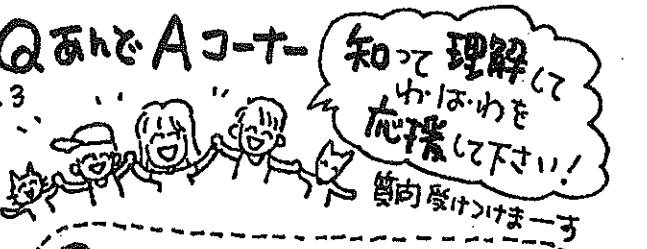 QあんどAコーナー
.3
知って理解して
わ・は・わを
応援して下さい!
質問受けつけまーす